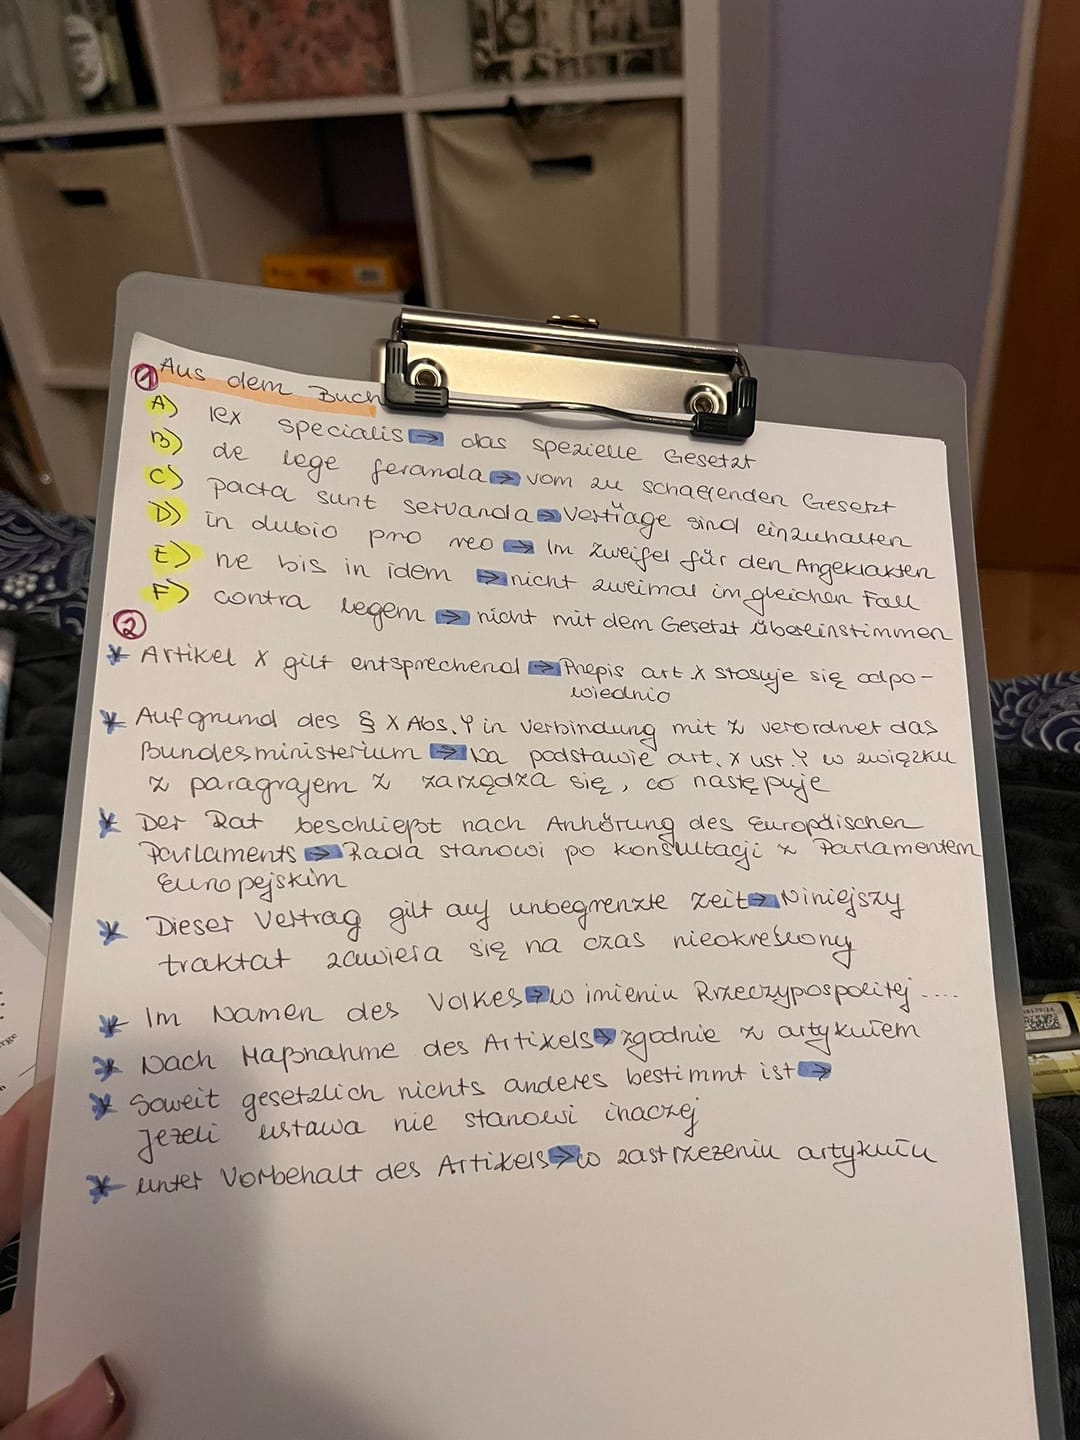 1 Aus dem Buch
A) lex specialis → das spezielle Gesetzt
B) de lege feranda → vom zu schaffenden Gesetzt
C) pacta sunt servanda → Verträge sind einzuhalten
D) in dubio pro reo → Im Zweifel für den Angeklakten
E) ne bis in idem → nicht zweimal im gleichen Fall
F) contra legem → nicht mit dem Gesetzt übereinstimmen
2
* Artikel X gilt entsprechend → Przepis art. X stosuje się odpo-
wiednio
* Aufgrund des § X Abs. Y in Verbindung mit Z verordnet das
Bundesministerium → Na podstawie art. X ust. Y w związku
z paragrafem Z zarządza się, co następuje
* Der Rat beschließt nach Anhörung des Europäischen
Parlaments → Rada stanowi po konsultacji z Parlamentem
Europejskim
* Dieser Vertrag gilt auf unbegrenzte Zeit → Niniejszy
traktat zawiera się na czas nieokreślony
* Im Namen des Volkes → w imieniu Rrzeczypospolitej ....
* Nach Maßnahme des Artikels → zgodnie z artykułem
* Soweit gesetzlich nichts anderes bestimmt ist →
Jeżeli ustawa nie stanowi inaczej
* unter Vorbehalt des Artikels → w zastrzeżeniu artykułu